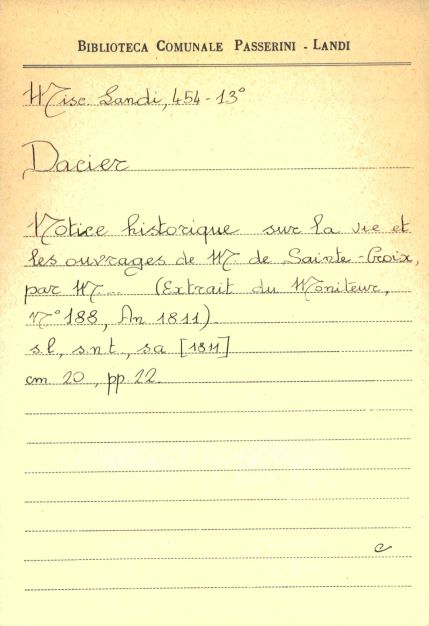 BIBLIOTECA COMUNALE PASSERINI - LANDI
Misc. Landi, 454-13°
Dacier
Notice historique sur la vie et
les ouvrages de M. de Sainte-Croix,
par M... (Extrait du Moniteur,
N° 188, An 1811).
s.l., s.n.t., s.a. [1811]
cm. 20, pp. 22.
c